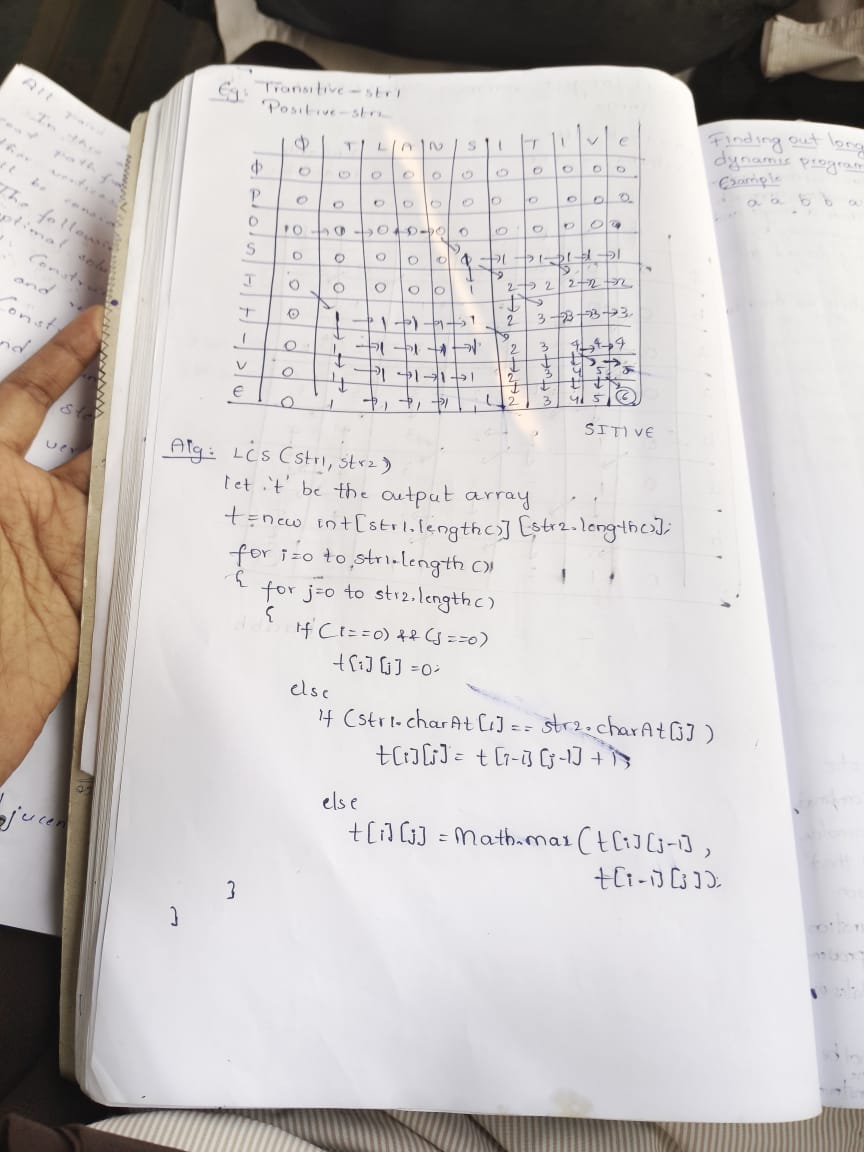 All
In this
The following
optimal solu
Construc
and
Const
and
ver
jucen
Eg: Transitive - str1
Positive - str2
Φ T L A N S I T I V E
Φ 0 0 0 0 0 0 0 0 0 0 0
P 0 0 0 0 0 0 0 0 0 0 0
O 0 → 0 → 0 → 0 → 0 0 0 0 0 0 0
S 0 0 0 0 0 1 → 1 → 1 → 1 → 1 → 1
I 0 0 0 0 0 1 2 → 2 2 → 2 → 2
T 0 1 → 1 → 1 → 1 → 1 2 3 → 3 → 3 → 3
I 0 1 → 1 → 1 → 1 → 1 2 3 4 → 4 → 4
V 0 1 → 1 → 1 → 1 → 1 2 3 4 5 → 5
E 0 1 → 1 → 1 → 1 1 2 3 4 5 6
SITIVE
Alg: LCS (str1, str2)
let 't' be the output array
t = new int [str1.length()] [str2.length()];
for i=0 to str1.length()
{ for j=0 to str2.length()
{
If (i==0) && (j==0)
t[i][j] = 0;
else
If (str1.charAt[i] == str2.charAt[j])
t[i][j] = t[i-1][j-1] + 1;
else
t[i][j] = Math.max(t[i][j-1],
t[i-1][j]);
}
}
Finding out long
dynamic program
Example
a a b b a